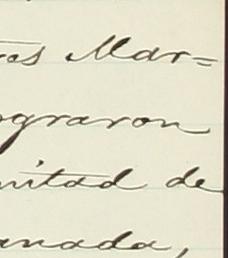 tes Mar=
ograron
mitad de
anada,